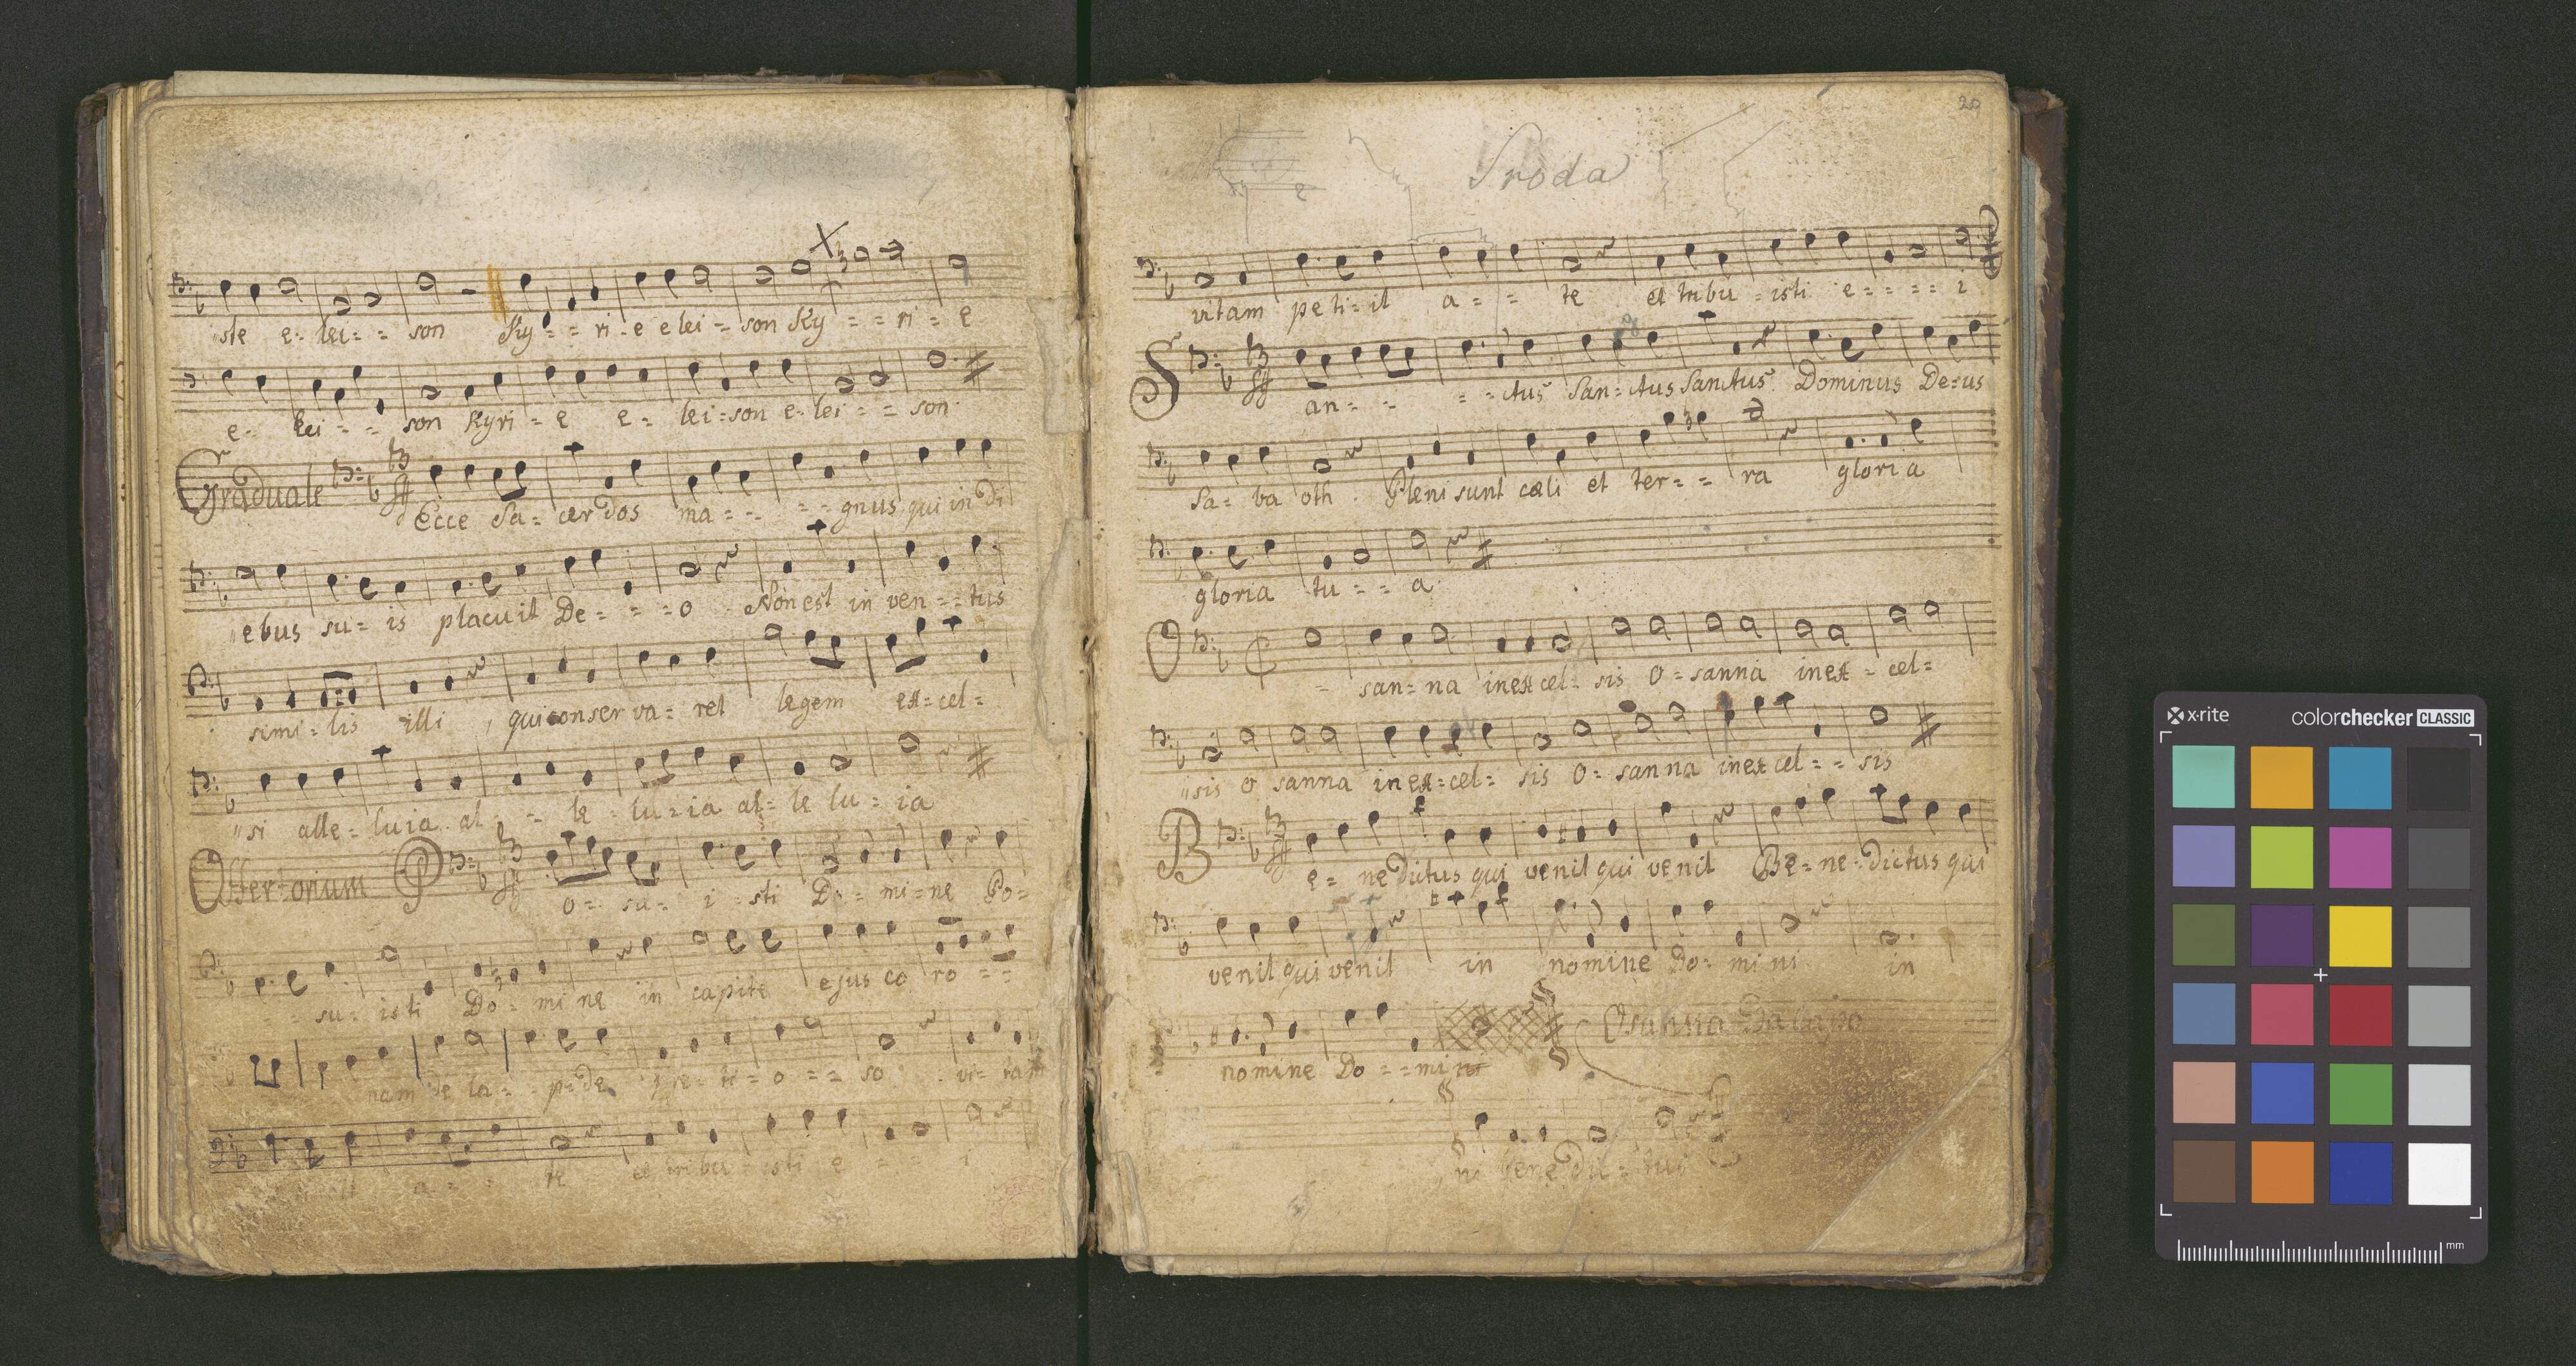 ste e- lei- - son Ky- - ri- e elei- son Ky- - ri- e
e- lei- - son Kyri- e e- lei-son e- lei- - son
Graduale Ecce Sa- cerdos ma- - - - gnus qui in di
ebus su- is placuit De- - - o Non est inven- - tus
simi- lis illi, qui conserva- ret legem ex- cel-
si alle- luia al- - le lu- ia al- le lu- ia
Offertorium P o- su- i- sti Do- mi- ne Po-
- - su- isti Do- mi ne in capite ejus co ro - -
nam de la- - pide preti- o - - so vi- ta
a- - te et tribu isti e - i
20
Sroda
vitam peti- it a- - - te et tribu- isti e- - - - i
San- - - - ctus San- ctus Sanctus Dominus De- us
Sa- ba oth. Pleni sunt cæli et ter- - ra gloria
gloria tu- - a
O - san- na in excel- sis O- sanna in ex- cel-
sis O sanna in ex- cel- sis O- sanna in excel- - sis
B e- nedictus qui venit qui venit Be- ne- dictus qui
venit qui venit in nomine Do- mi ni. in
nomine Do- - mi ni Osanna Da Capo
ni benedic- tus
x-rite colorchecker CLASSIC
mm